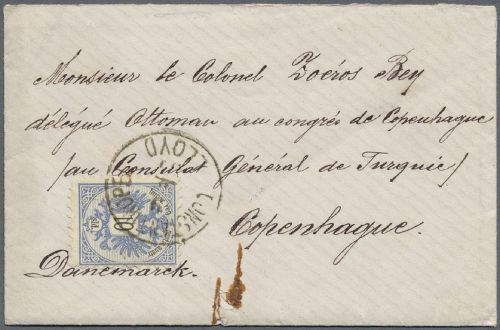 Monsieur le Colonel Zoéros Bey
délégué Ottoman au congrés de Copenhague
(au Consulat Général de Turquie)
Copenhague.
Danemarck.
LLOYD
10